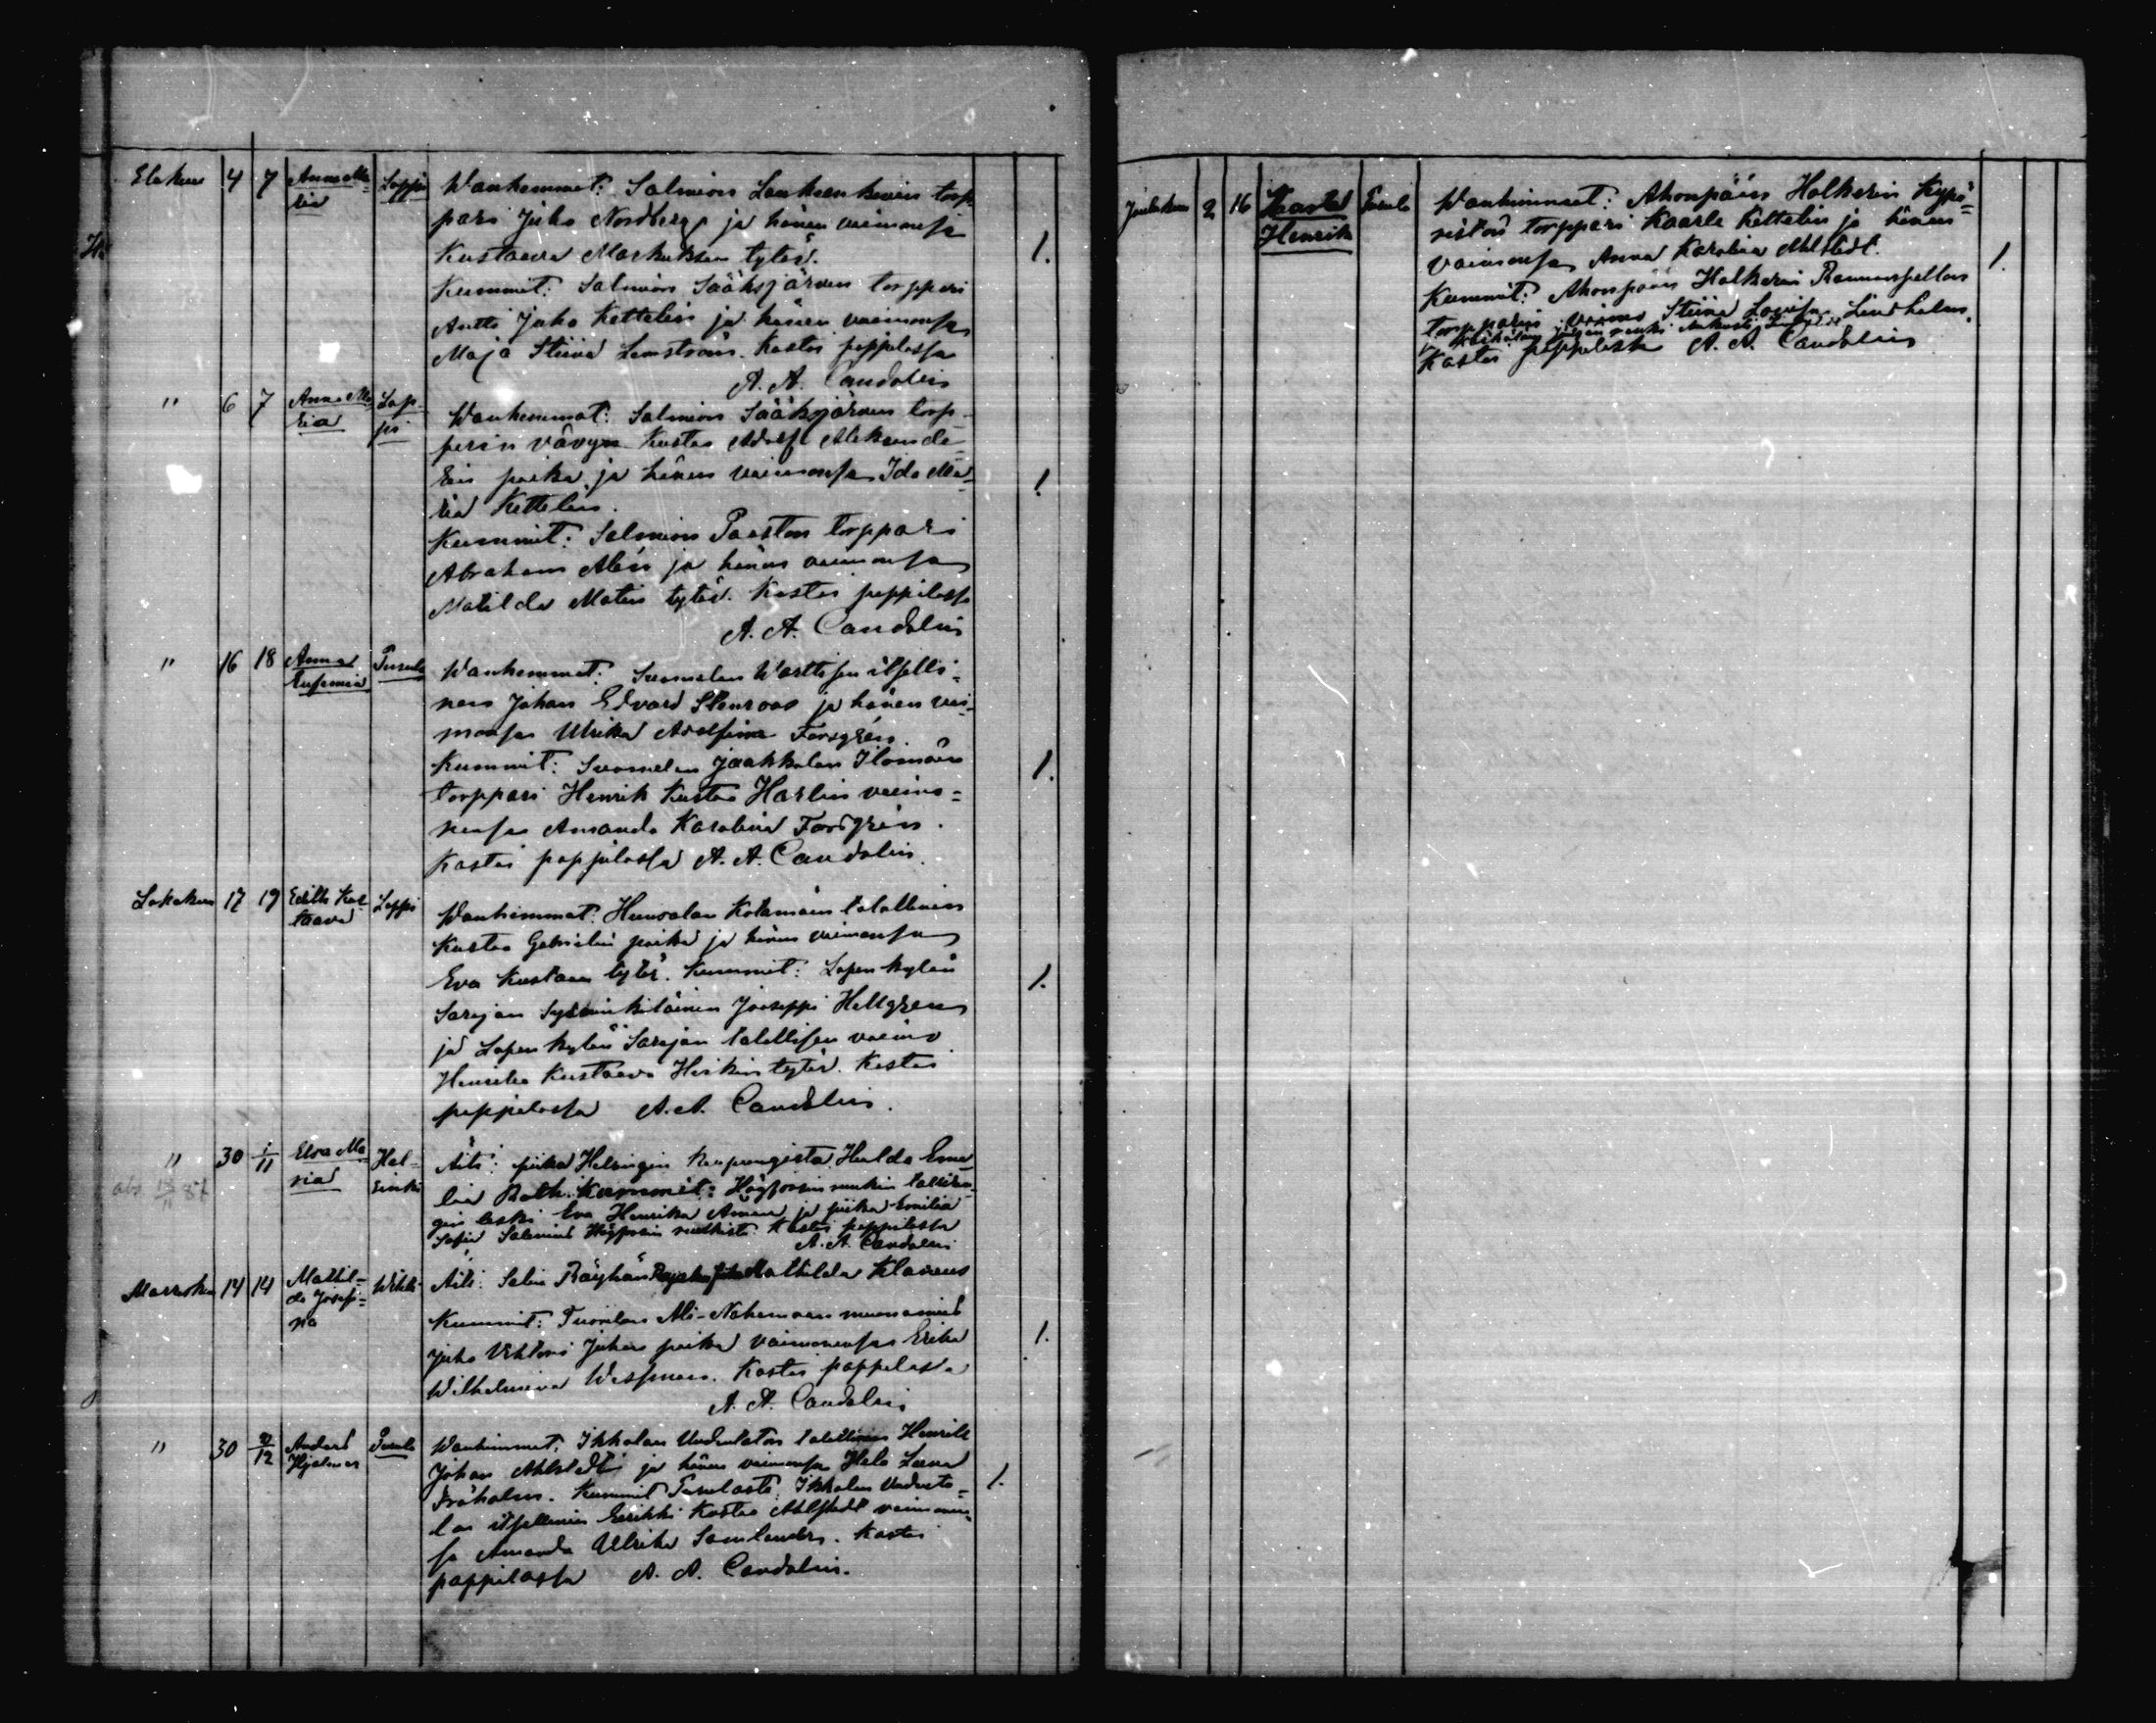 Elokuu 4 7 Anna Ma= Loppi Wanhemmat: Salmion Lauhsankiven torp=
ria pari Juho Nordberg ja hänen vaimonsa
Kustaava Markuksen tytär. 1.
Kummit: Salmion Sääksjärven torppari
Antti Juho Kettelin ja hänen vaimonsa
Maja Stiina Lemström. Kastoi pappilassa
A. A. Candolin
" 6 7 Anna Ma Lop- Wanhemmat: Salmion Sääksjärven torp-
ria pi perin vävyn Kustaa Adolf Aleksande=
rin poika ja hänen vaimonsa Ida Ma= 1.
ria Kettelin.
Kummit: Salmion Paaston torppari
Abraham Alén ja hänen vaimonsa
Matilda Matin tytär. Kastoi pappilassa
A. A. Candolin
" 16 18 Anna Pusula Wanhemmat: Suomelan Warttisen itselli=
Eufemia nen Johan Edvard Stenroos ja hänen vai=
monsa Ulrika Adolfina Forsgrén.
Kummit: Suomelan Jaakkolan Ilomäen 1.
torppari Henrik Kustaa Harlin vaimo=
neusa Amanda Karolina Forsgrén.
Kastoi pappilassa A. A. Candolin.
Lokakuu 17 19 Edith Kus Loppi Wanhimmat: Hunsalan Kotamäen talollinen
taava Kustaa Gabrielin poika ja hänen vaimonsa
Eva Kustaan tytär. Kummit: Lopen kylän 1.
Sarajan Jooseppi Hellgren
ja Lopen kylän Sarajan talollisen vaimo
Henrika Kustaava Heikin tytär. Kastoi
pappilassa A. A. Candolin.
" 30 1/11 Elsa Ma Hel- Äiti: piika Helsingin kaupungista Hulda Ema
ria sinki lia Roth. Kummit: Högforsin ruukin
leski Eva Henrika Aman ja piika Emilia
Sofia Salenius Högforsin ruukista. Kastoi pappilassa
A. A. Candolin
Marraskuu 14 14 Mathil= Wihti Äiti: Selin Räyhän piika Mathilda Klaavus
da Josefi= Kummit: Tuorilan Ali-Nohemaan muonamies
na Juho Viktori Juhan poika vaimoneusa Erika 1.
Wilhelmiina Wesman. Kastoi pappilassa
A. A. Candolin
" 30 2/12 Anders Pusula Wanhimmat: Ikkalan Uudentalon talollinen Henrik
Hjalmar Johan Ahlstedt ja hänen vaimonsa Hela Leena
Fröholm. Kummit Pusulasta: Ikkalan Uudenta= 1.
lon itsellinen Eerikki Kustaa Ahlstedt vaimoneu=
sa Amanda Ulrika Samlander. Kastoi
pappilassa A. A. Candolin.
Joulukuu 2 16 Kaarlo Pusula Wanhimmat: Ahonpään Halkerin
Henrik torppari Kaarle Kettelin ja hänen
vaimonsa Anna Karolina Ahlstedt. 1.
Kummit: Ahonpään Halkerin Rannanpellon
torpparin vaimo Stiina Lovisa Lindholm.
Kastoi pappilassa A. A. Candolin